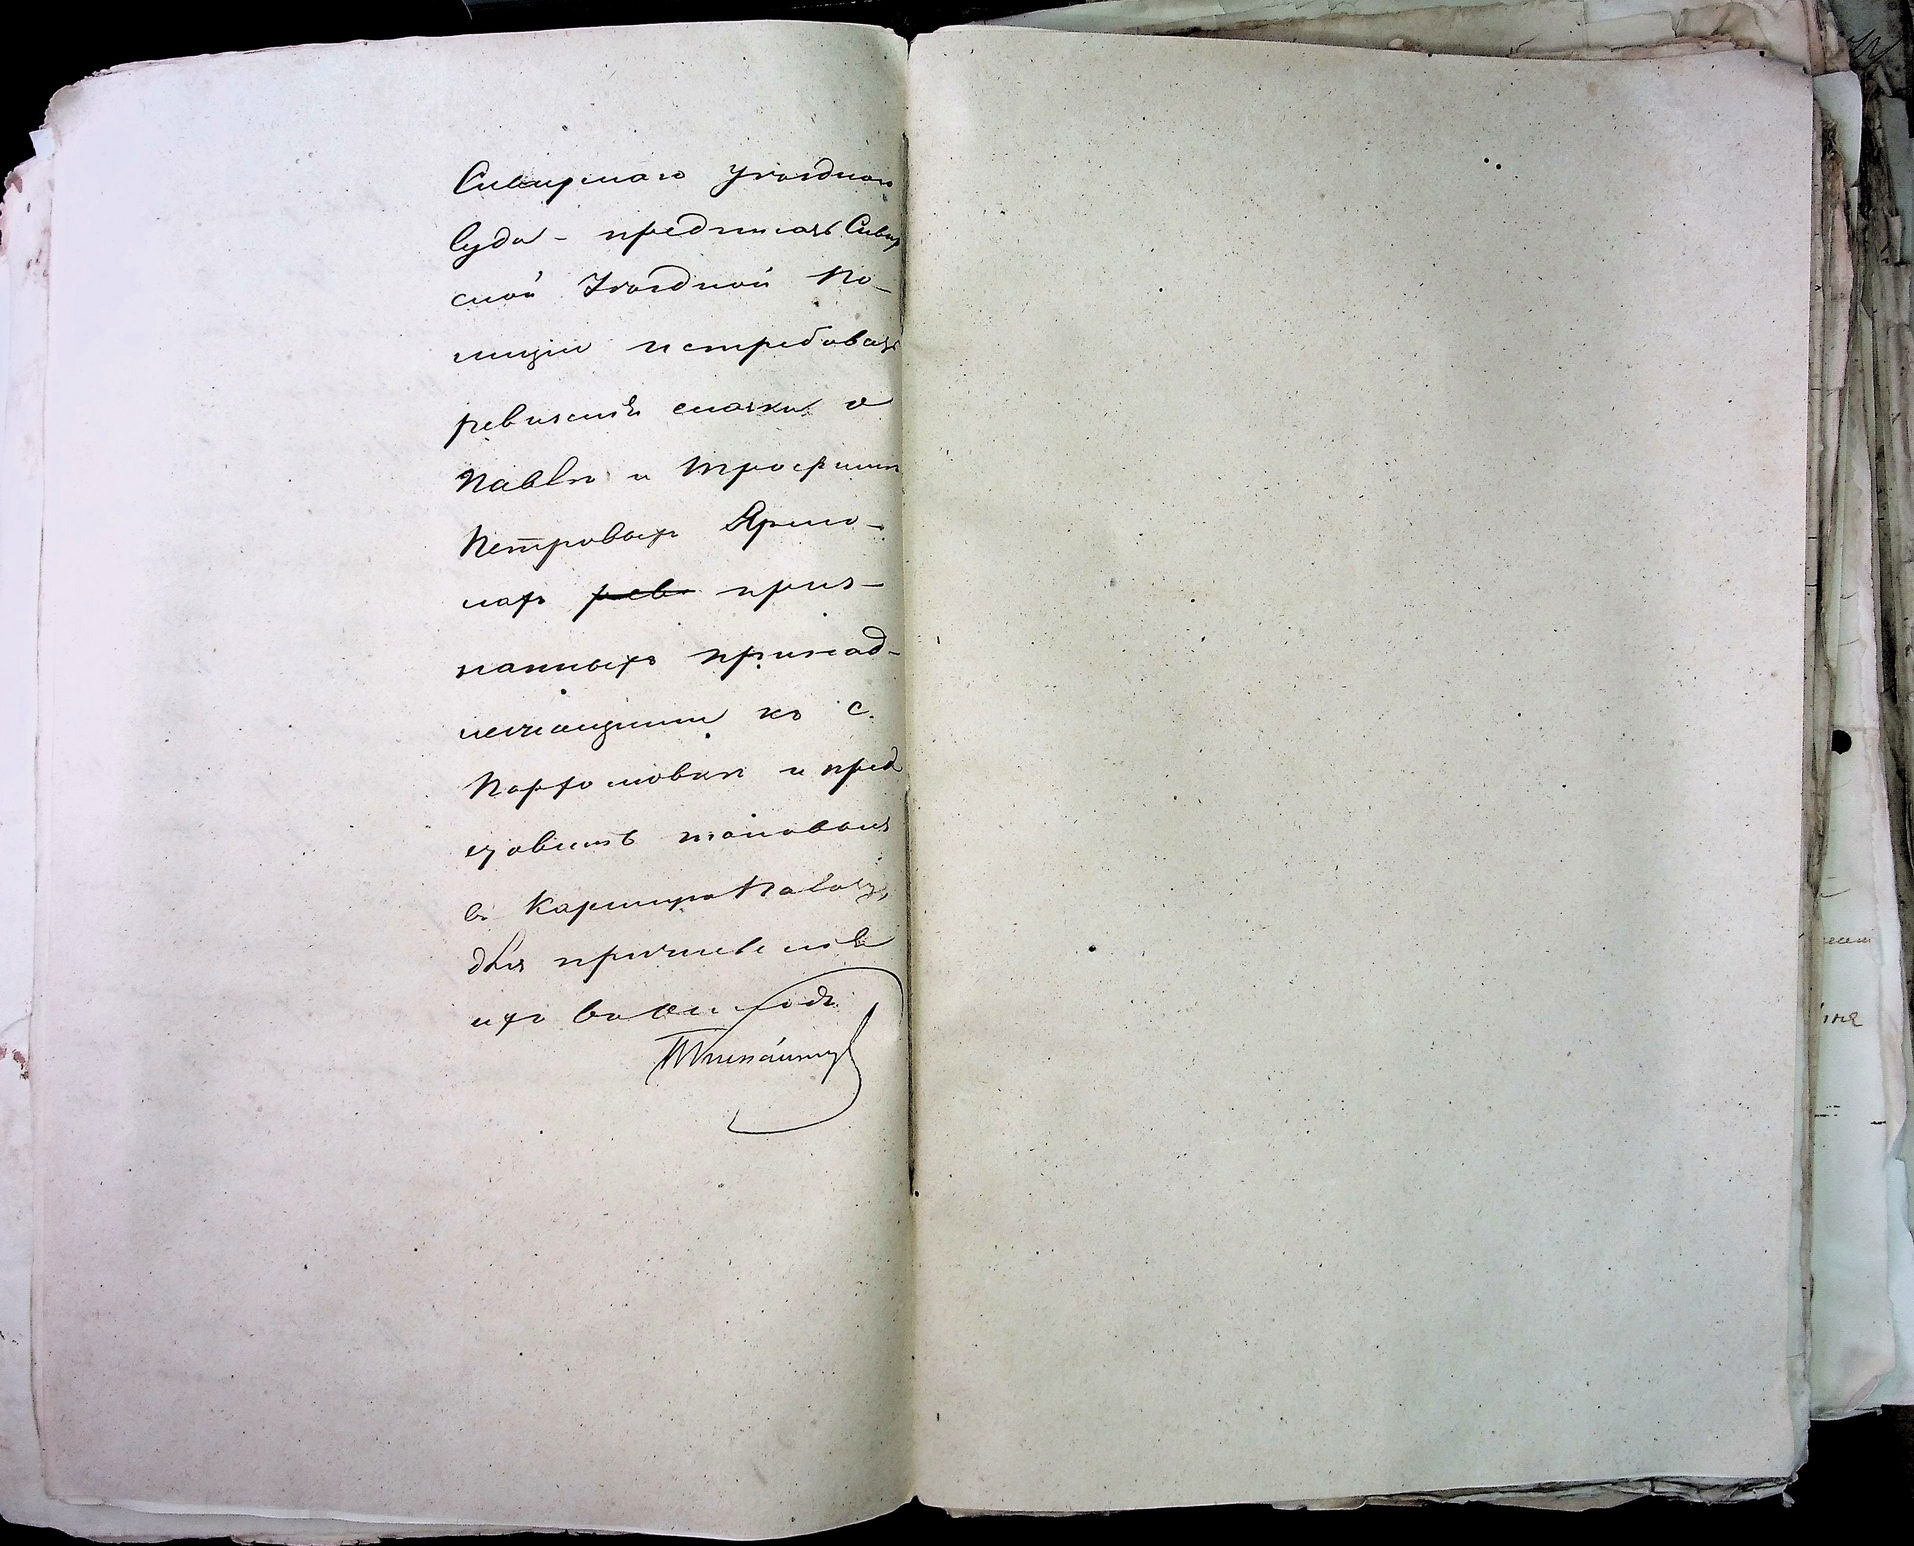 Сквирскаго Уѣзднаго
Суда – предписать Сквир
ской Уѣздной По-
лиціи истребовать
ревизскія сказки о
Павлѣ и Трофимѣ
Петровыхъ Ярмо-
лахъ рев приз-
нанныхъ принад-
лежащими къ с.
Пархомовкѣ и пред
ставить таковыя
въ Палату,
для причисленія
ихъ въ окладъ.